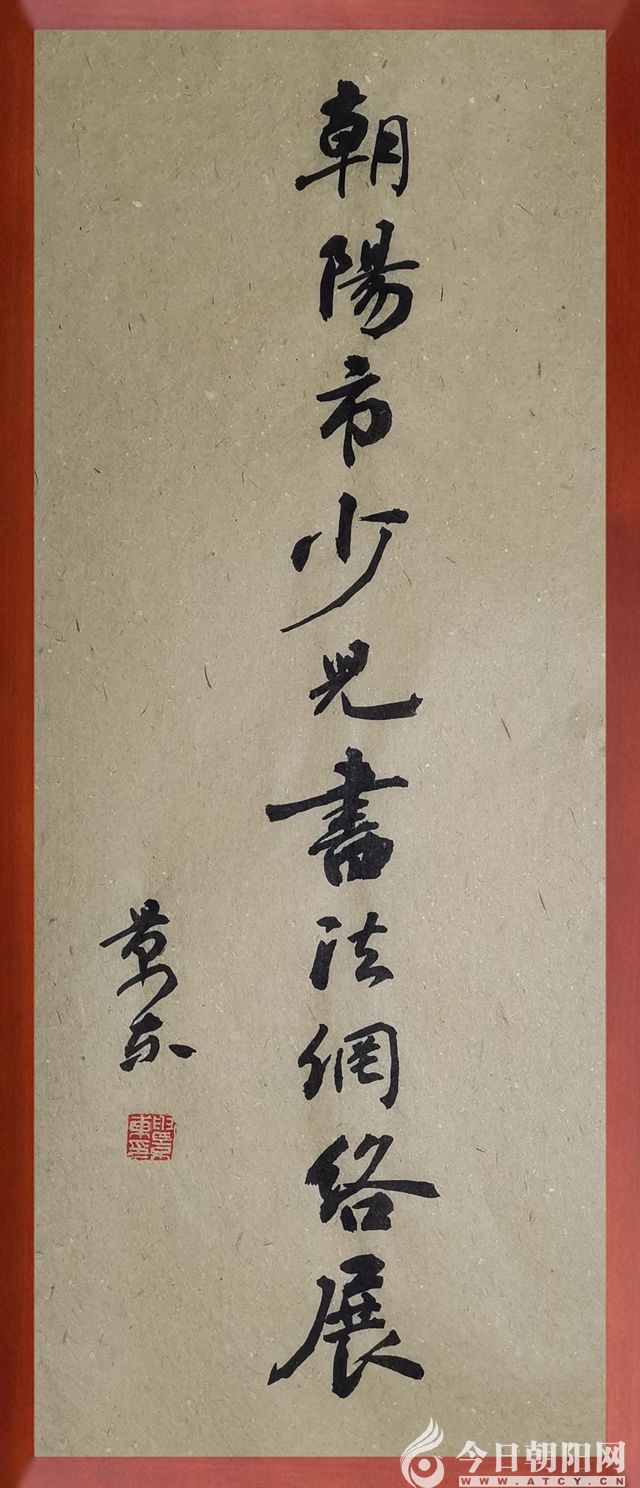 朝陽市少兒書法網络展
景东
今日朝阳网
WWW.ATCY.CN